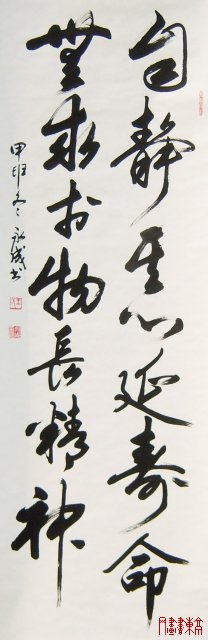 自静其心延寿命
無求於物長精神
甲申冬 永成書